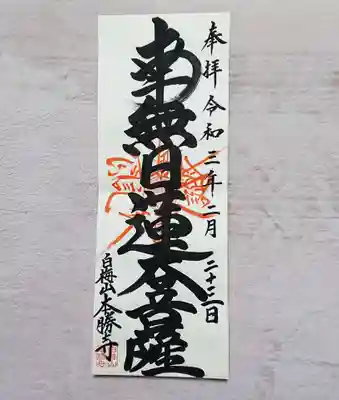 奉拝 令和三年二月 二十二日
南無日蓮大菩薩
白梅山本勝寺